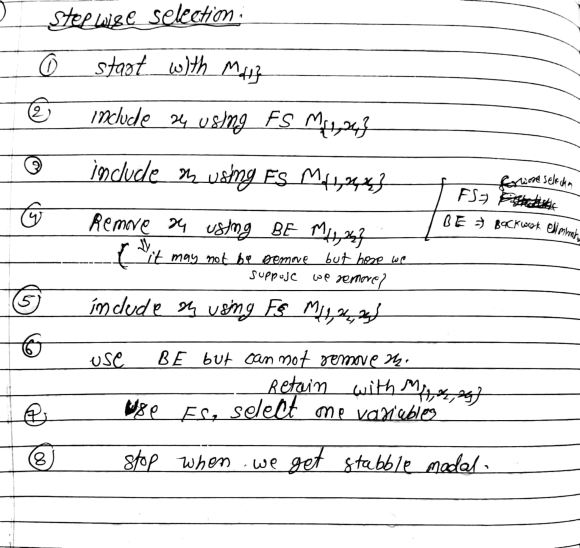 stepwise selection.
① start with M{1}
② include x₁ using FS M{1,x₁}
③ include x₂ using FS M{1,x₁,x₂}
FS ⇒ forward selection
④ Remove x₁ using BE M{1,x₂}
BE ⇒ Backward elimination
{ it may not be remove but here we
suppose we remove}
⑤ include x₃ using FS M{1,x₂,x₃}
⑥ use BE but can not remove x₂.
Retain with M{1,x₂,x₃}
⑦ use FS, select one variables
⑧ stop when we get stabble modal.